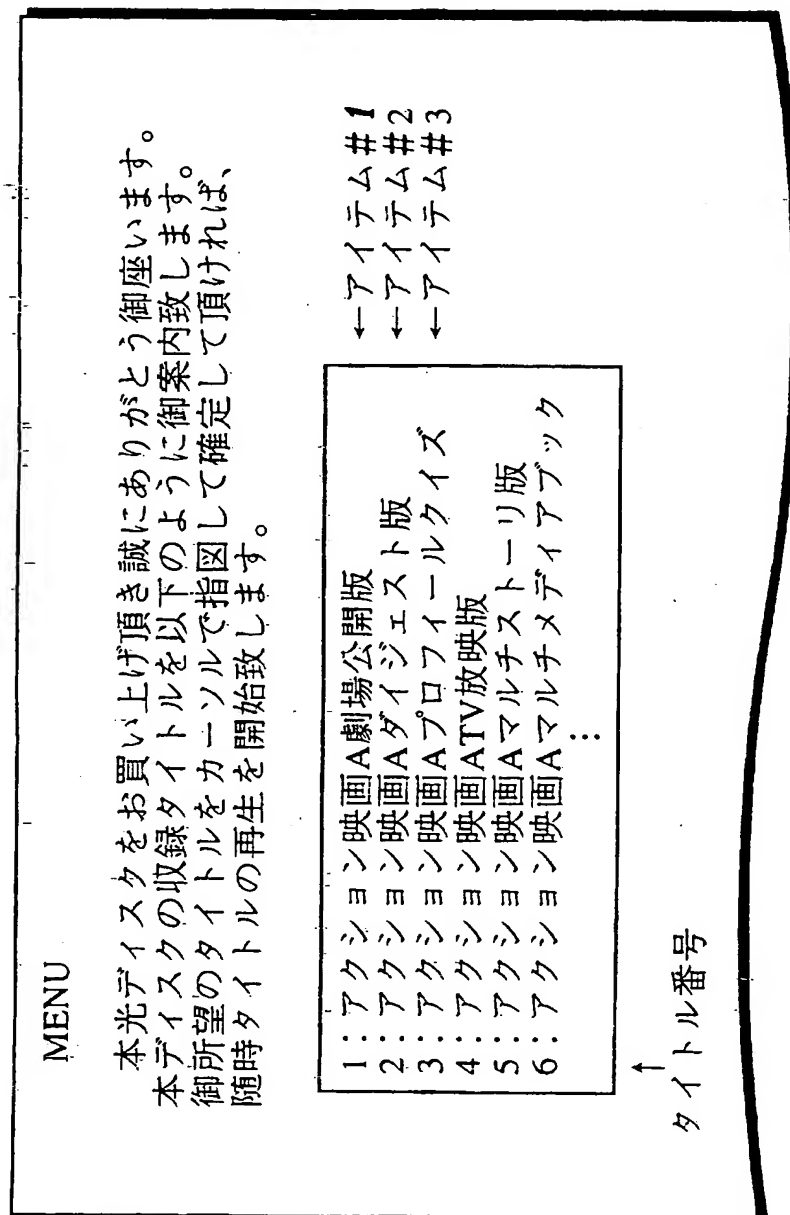 MENU
本光ディスクをお買い上げ頂き誠にありがとう御座います。
本ディスクの収録タイトルを以下のように御案内致します。
御所望のタイトルをカーソルで指図して確定して頂ければ、
随時タイトルの再生を開始致します。
1：アクション映画A劇場公開版 ←アイテム#1
2：アクション映画Aダイジェスト版 ←アイテム#2
3：アクション映画Aプロフィールクイズ ←アイテム#3
4：アクション映画ATV放映版
5：アクション映画Aマルチストーリ版
6：アクション映画Aマルチメディアブック
⋮
↑
タイトル番号